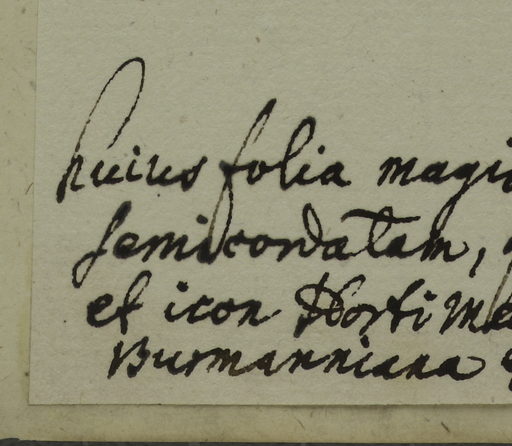 huius folia magi
semicordatam,
et icon Horti Me
Burmanniana